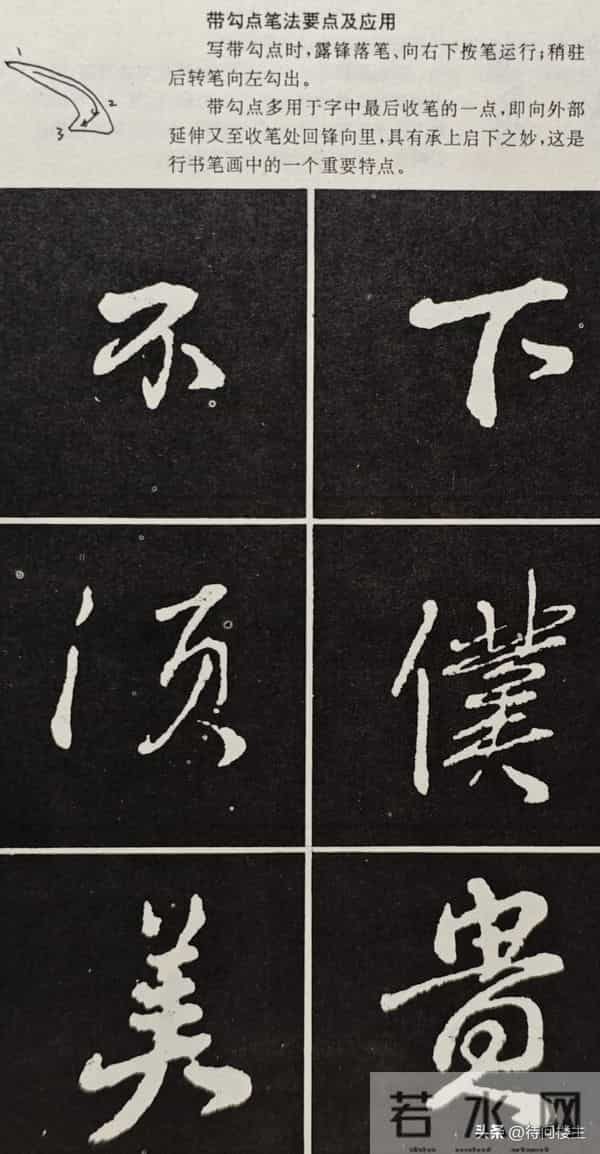 带勾点笔法要点及应用
写带勾点时,露锋落笔、向右下按笔运行;稍驻
后转笔向左勾出。
带勾点多用于字中最后收笔的一点,即向外部
延伸又至收笔处回锋向里,具有承上启下之妙,这是
行书笔画中的一个重要特点。
1
2
3
不 下
须 僕
美 貴
若水网
头条 @待问楼主